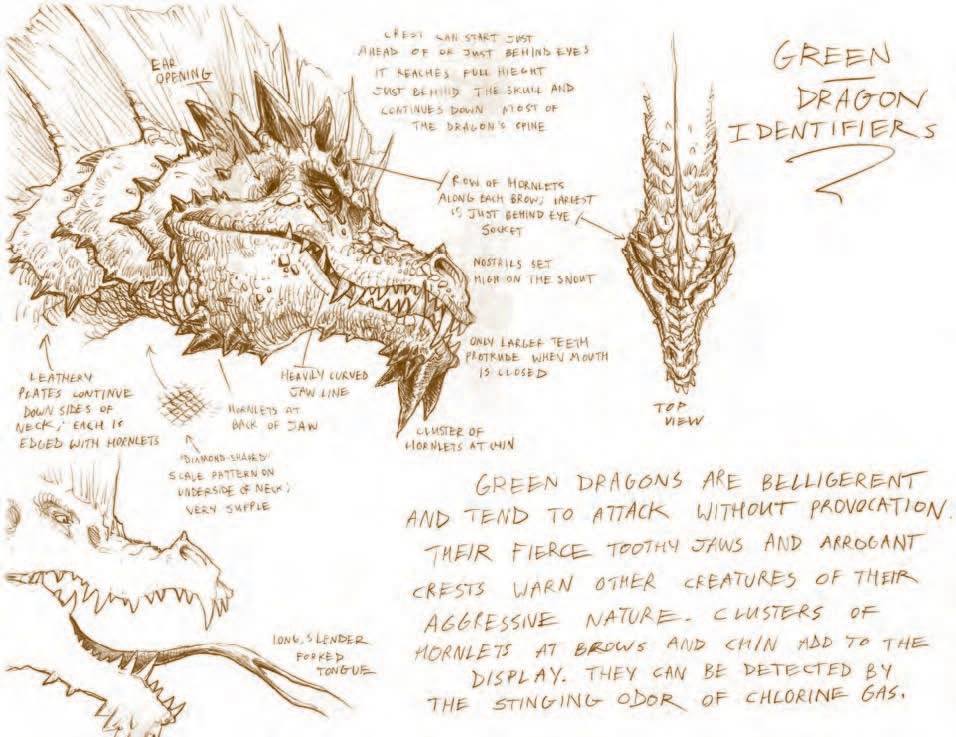 GREEN
DRAGON
IDENTIFIERS
EAR
OPENING
CREST CAN START JUST
AHEAD OF OR JUST BEHIND EYES
IT REACHES FULL HIEGHT
JUST BEHIND THE SKULL AND
CONTINUES DOWN MOST OF
THE DRAGON'S SPINE
ROW OF HORNLETS
ALONG EACH BROW; LARGEST
IS JUST BEHIND EYE
SOCKET
NOSTRILS SET
HIGH ON THE SNOUT
ONLY LARGER TEETH
PROTRUDE WHEN MOUTH
IS CLOSED
TOP
VIEW
LEATHERY
PLATES CONTINUE
DOWN SIDES OF
NECK; EACH IS
EDGED WITH HORNLETS
HEAVILY CURVED
JAW LINE
HORNLETS AT
BACK OF JAW
CLUSTER OF
HORNLETS AT CHIN
"DIAMOND-SHAPED"
SCALE PATTERN ON
UNDERSIDE OF NECK;
VERY SUPPLE
LONG, SLENDER
FORKED
TONGUE
GREEN DRAGONS ARE BELLIGERENT
AND TEND TO ATTACK WITHOUT PROVOCATION.
THEIR FIERCE TOOTHY JAWS AND ARROGANT
CRESTS WARN OTHER CREATURES OF THEIR
AGGRESSIVE NATURE. CLUSTERS OF
HORNLETS AT BROWS AND CHIN ADD TO THE
DISPLAY. THEY CAN BE DETECTED BY
THE STINGING ODOR OF CHLORINE GAS.